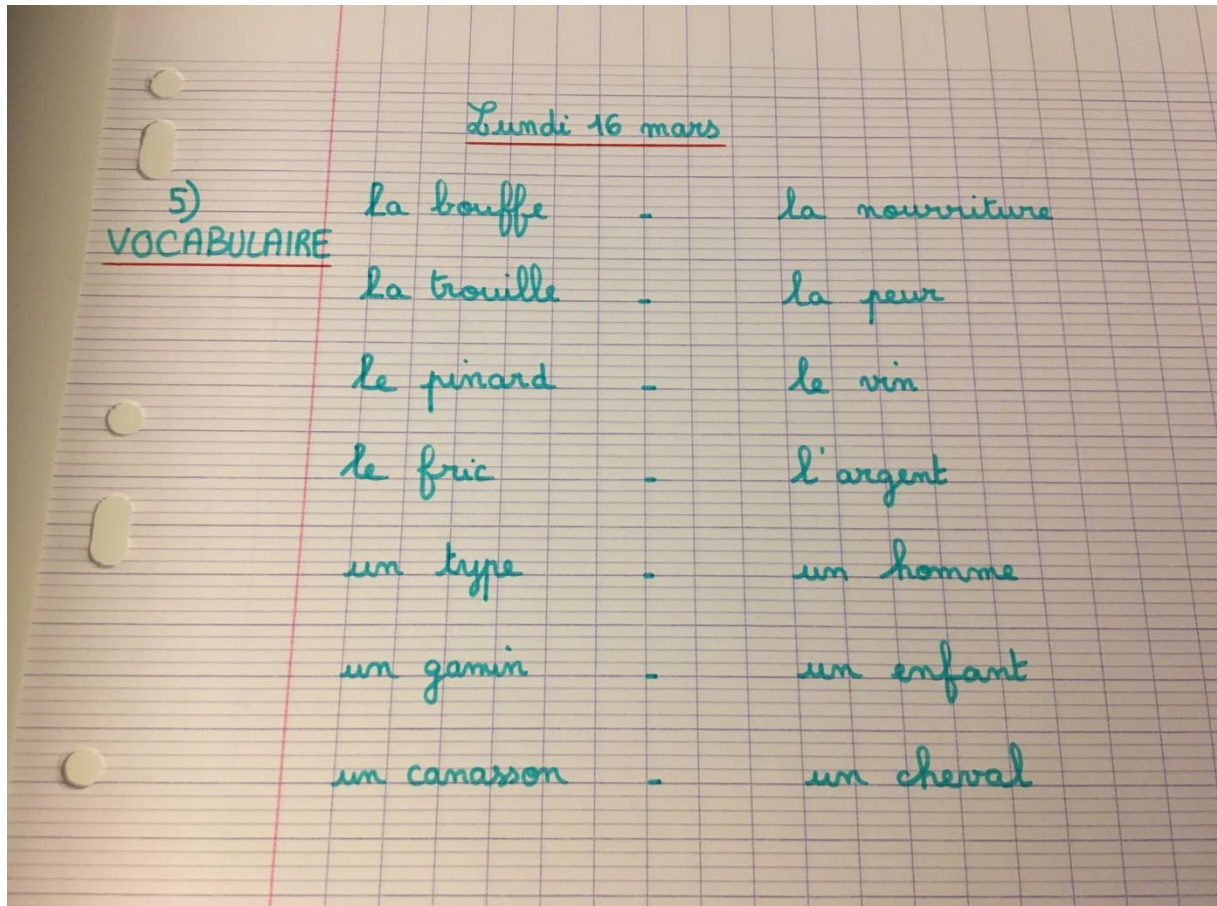 Lundi 16 mars
5)
VOCABULAIRE
la bouffe - la nourriture
la trouille - la peur
le pinard - le vin
le fric - l'argent
un type - un homme
un gamin - un enfant
un canasson - un cheval